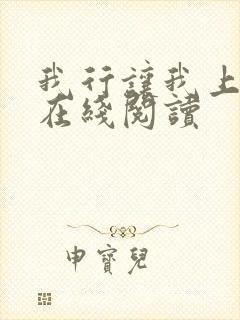 我行讓我上
在綫閱讀
申寶兒